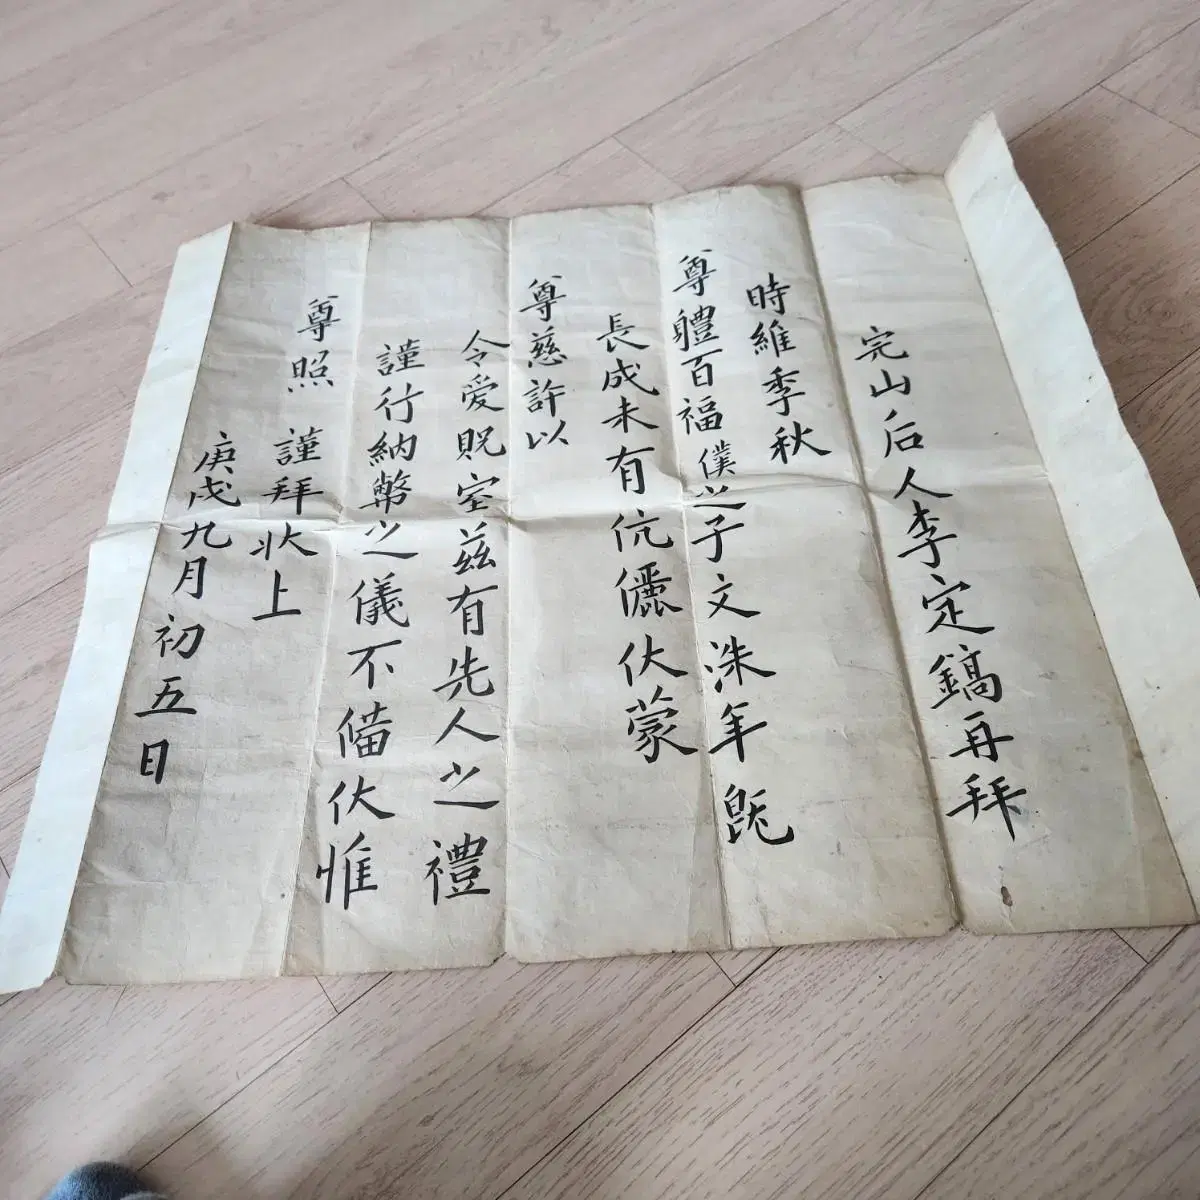 完山后人李定鎬再拜
時維季秋
尊軆百福僕之子文洙年旣
長成未有伉儷伏蒙
尊慈許以
令愛貺室玆有先人之禮
謹行納幣之儀不備伏惟
尊照 謹拜狀上
庚戌九月初五日